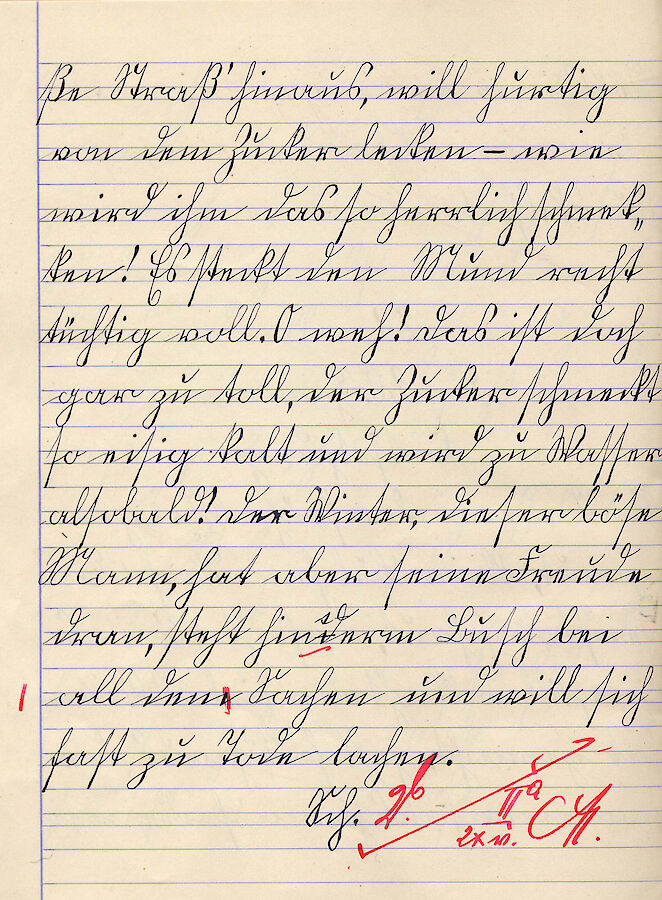 ße Straß' hinaus, will hurtig
von dem Zucker lecken – wie
wird ihm das so herrlich schmek„
ken! Es steckt den Mund recht
tüchtig voll. O weh! das ist doch
gar zu toll, der Zucker schmeckt
so eisig kalt und wird zu Wasser
alsobald! der Winter, dieser böse
Mann, hat aber seine Freude
dran, steht hinderm Busch bei
all dene Sachen und will sich
fast zu Tode lachen.
Sch. 2b IIa
2x w.